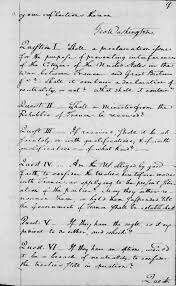 Go: Washington
Question I. Shall a proclamation issue for
the purpose of preventing interferences of
the Citizens of the United States in the
war between France and Great Britain
&ca? Shall it contain a declaration of
neutrality or not? what shall it contain?
Quest II — Shall a Minister from the
Republic of France be received?
Quest III — If received shall it be
with qualifications; and if
Quest IV — Are the U.S. obliged by good
faith to consider the treaties
made
as applying to the present
of the parties? may they either re-
them, or hold them till
the government of France shall be established
Quest V — If they have the right, is it ex-
pedient to do either, and which?
Quest VI — If they have an option, would
it be a breach of neutrality to consider
the treaties still in operation?
Quest